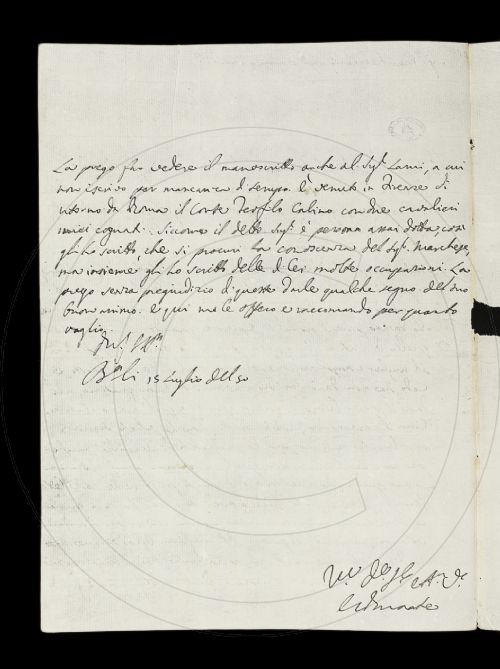 La prego far vedere il manoscritto anche al Sig.r Lami, a cui
non iscrivo per mancanza di tempo. È venuto in Firenze di
ritorno da Roma il Conte Teofilo Calino con due cavalieri
miei cognati. Siccome il detto Sig.r è persona assai dotta, così
gli ho scritto, che si procuri la conoscenza del Sig.r Marchese,
ma insieme gli ho scritto delle di Lei molte occupazioni. La
prego senza pregiudizio di queste darle qualche segno del suo
buon animo. E qui me le offero e raccomando per quanto
vaglio.
15 Luglio del 50